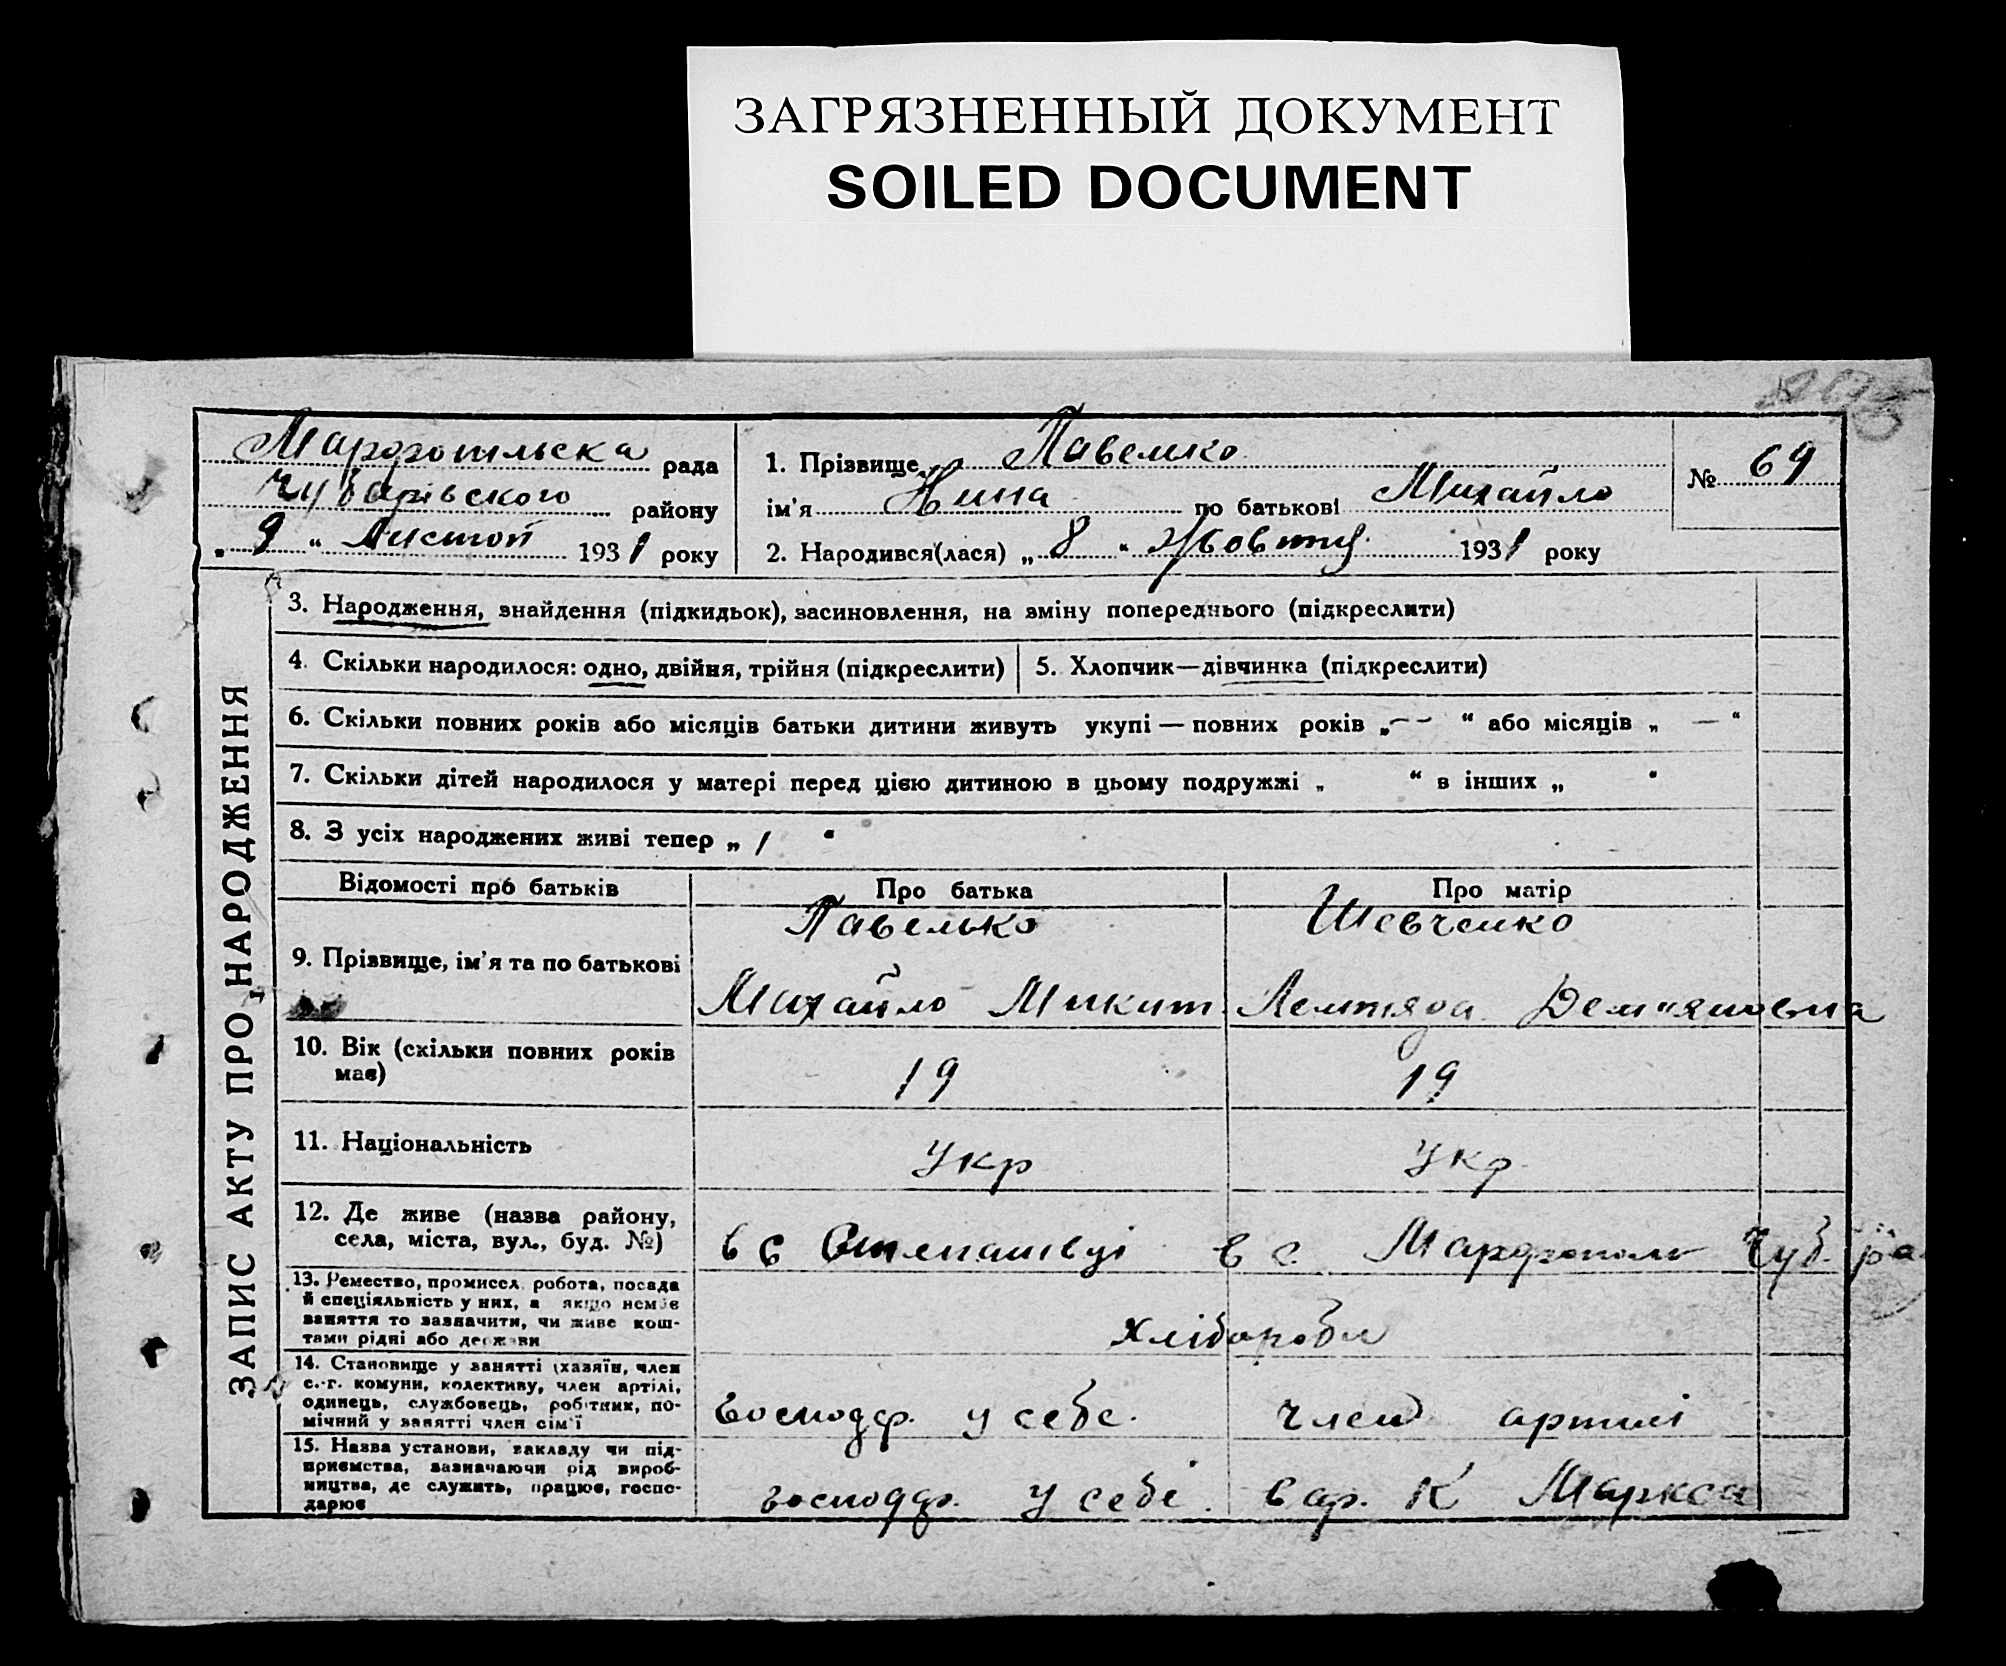 ЗАГРЯЗНЕННЫЙ ДОКУМЕНТ
SOILED DOCUMENT
Марфопільска рада
Чубарівського району
„ 9 “ Листоп 1931 року
1. Прізвище Павелко
ім'я Нина по батькові Михайло
2. Народився(лася) „ 8 “ Жовтня 1931 року
№ 69
ЗАПИС АКТУ ПРО НАРОДЖЕННЯ
3. Народження, знайдення (підкидьок), засиновлення, на зміну попереднього (підкреслити)
4. Скільки народилося: одно, двійня, трійня (підкреслити)
5. Хлопчик—дівчинка (підкреслити)
6. Скільки повних років або місяців батьки дитини живуть укупі — повних років „ – – “ або місяців „ — “
7. Скільки дітей народилося у матері перед цією дитиною в цьому подружжі „ “ в інших „ “
8. З усіх народжених живі тепер „ 1 “
Відомості про батьків
Про батька
Про матір
9. Прізвище, ім'я та по батькові
Павелько
Михайло Микит.
Шевченко
Дем'яновна
10. Вік (скільки повних років
має)
19
19
11. Національність
Укр
Укр
12. Де живе (назва району,
села, міста, вул., буд. №)
в с
в с. Марфополь Чуб. ра
13. Ремество, промисел, робота, посада
й спеціяльність у них, а якщо немає
заняття то зазначити, чи живе кош-
тами рідні або держави
хлібороби
14. Становище у занятті (хазяїн, член
с.-г. комуни, колективу, член артілі,
одинець, службовець, робітник, по-
мічний у занятті член сім'ї
господар. у себе.
член артілі
15. Назва установи, закладу чи під-
приємства, зазначаючи рід вироб-
ництва, де служить, працює, госпо-
дарює
господар. у себе.
в ар. К Маркса